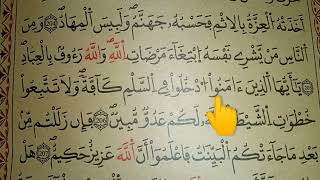 أَخَذَتْهُ الْعِزَّةُ بِالْإِثْمِ فَحَسْبُهُ جَهَنَّمُ وَلَبِئْسَ الْمِهَادُ ﴿٢٠٤﴾ وَمِنَ
النَّاسِ مَنْ يَشْرِي نَفْسَهُ ابْتِغَاءَ مَرْضَاتِ اللَّهِ وَاللَّهُ رَءُوفٌ بِالْعِبَادِ
يَا أَيُّهَا الَّذِينَ ءَامَنُوا ادْخُلُوا فِي السِّلْمِ كَافَّةً وَلَا تَتَّبِعُوا
خُطُوَاتِ الشَّيْطَ لَكُمْ عَدُوٌّ مُبِينٌ ﴿٢٠٦﴾ فَإِنْ زَلَلْتُمْ مِنْ
بَعْدِ مَا جَاءَتْكُمُ الْبَيِّنَاتُ فَاعْلَمُوا أَنَّ اللَّهَ عَزِيزٌ حَكِيمٌ ﴿٢٠٧﴾ هَلْ